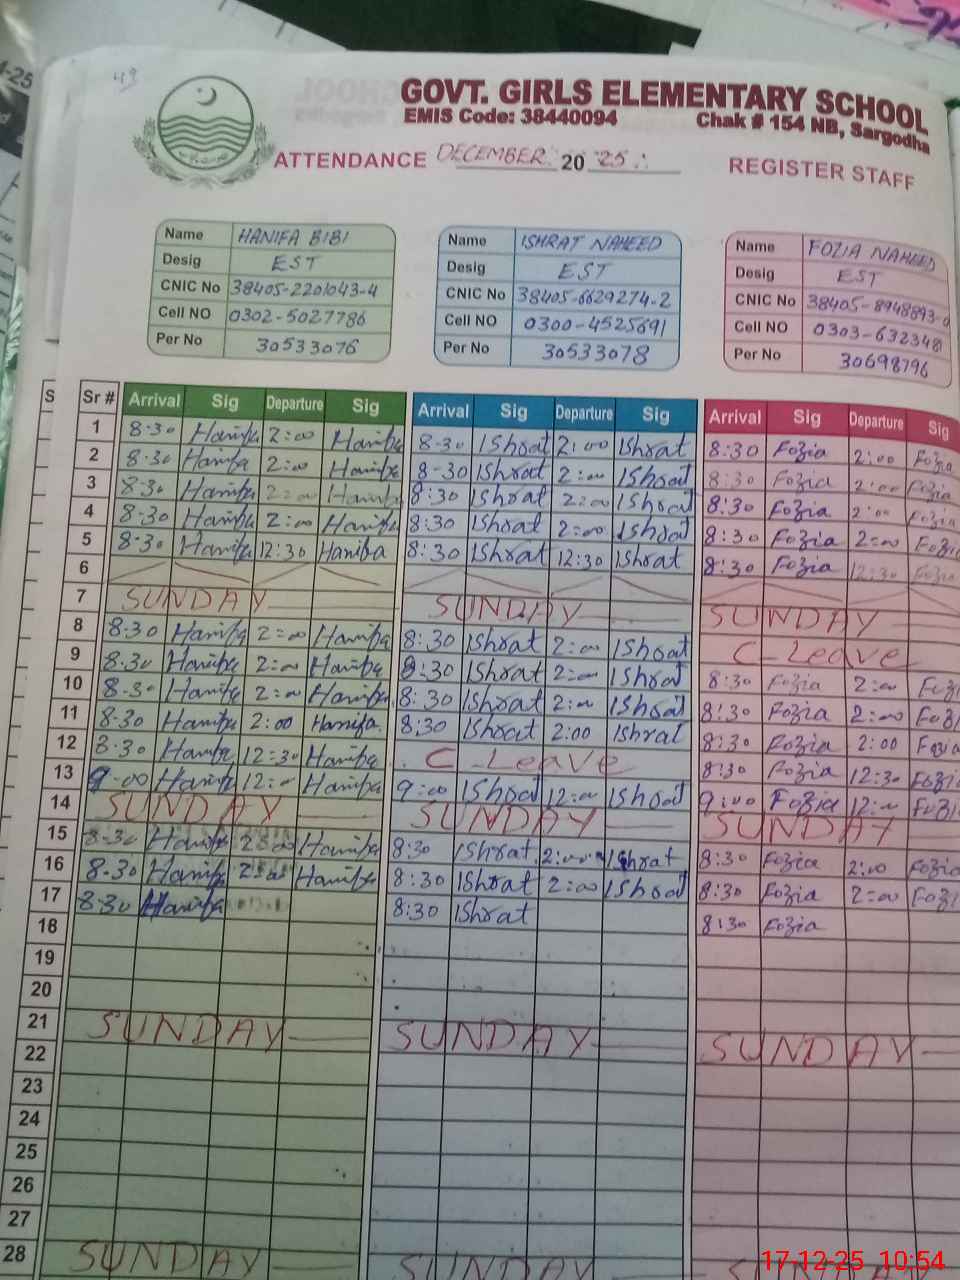 49
GOVT. GIRLS ELEMENTARY SCHOOL
EMIS Code: 38440094 Chak # 154 NB, Sargodha
ATTENDANCE DECEMBER 20 25 REGISTER STAFF
Name HANIFA BIBI Name ISHRAT NAHEED Name FOZIA NAHEED
Desig EST Desig EST Desig EST
CNIC No 38405-2201043-4 CNIC No 38405-6629274-2 CNIC No 38405-8948893-0
Cell NO 0302-5027786 Cell NO 0300-4525691 Cell NO 0303-6323481
Per No 30533076 Per No 30533078 Per No 30698796
S Sr # Arrival Sig Departure Sig Arrival Sig Departure Sig Arrival Sig Departure Sig
1 8-30 Hanifa 2:00 Hanifa 8-30 Ishrat 2:00 Ishrat 8:30 Fozia 2:00 Fozia
2 8-30 Hanifa 2:00 Hanifa 8-30 Ishrat 2:00 Ishrat 8:30 Fozia 2:00 Fozia
3 8-30 Hanifa 2:00 Hanifa 8:30 Ishrat 2:00 Ishrat 8:30 Fozia 2:00 Fozia
4 8-30 Hanifa 2:00 Hanifa 8:30 Ishrat 2:00 Ishrat 8:30 Fozia 2:00 Fozia
5 8-30 Hanifa 12:30 Hanifa 8:30 Ishrat 12:30 Ishrat 8:30 Fozia 12:30 Fozia
6
7 SUNDAY SUNDAY SUNDAY
8 8-30 Hanifa 2:00 Hanifa 8:30 Ishrat 2:00 Ishrat C-Leave
9 8-30 Hanifa 2:00 Hanifa 8:30 Ishrat 2:00 Ishrat 8:30 Fozia 2:00 Fozia
10 8-30 Hanifa 2:00 Hanifa 8:30 Ishrat 2:00 Ishrat 8:30 Fozia 2:00 Fozia
11 8-30 Hanifa 2:00 Hanifa 8:30 Ishrat 2:00 Ishrat 8:30 Fozia 2:00 Fozia
12 8-30 Hanifa 12:30 Hanifa C-Leave 8:30 Fozia 12:30 Fozia
13 9-00 Hanifa 12:00 Hanifa 9:00 Ishrat 12:00 Ishrat 9:00 Fozia 12:00 Fozia
14 SUNDAY SUNDAY SUNDAY
15 8-30 Hanifa 2:00 Hanifa 8:30 Ishrat 2:00 Ishrat 8:30 Fozia 2:00 Fozia
16 8-30 Hanifa 2:00 Hanifa 8:30 Ishrat 2:00 Ishrat 8:30 Fozia 2:00 Fozia
17 8-30 Hanifa 8:30 Ishrat 8:30 Fozia
18
19
20
21 SUNDAY SUNDAY SUNDAY
22
23
24
25
26
27
28 SUNDAY SUNDAY
17-12-25 10:54